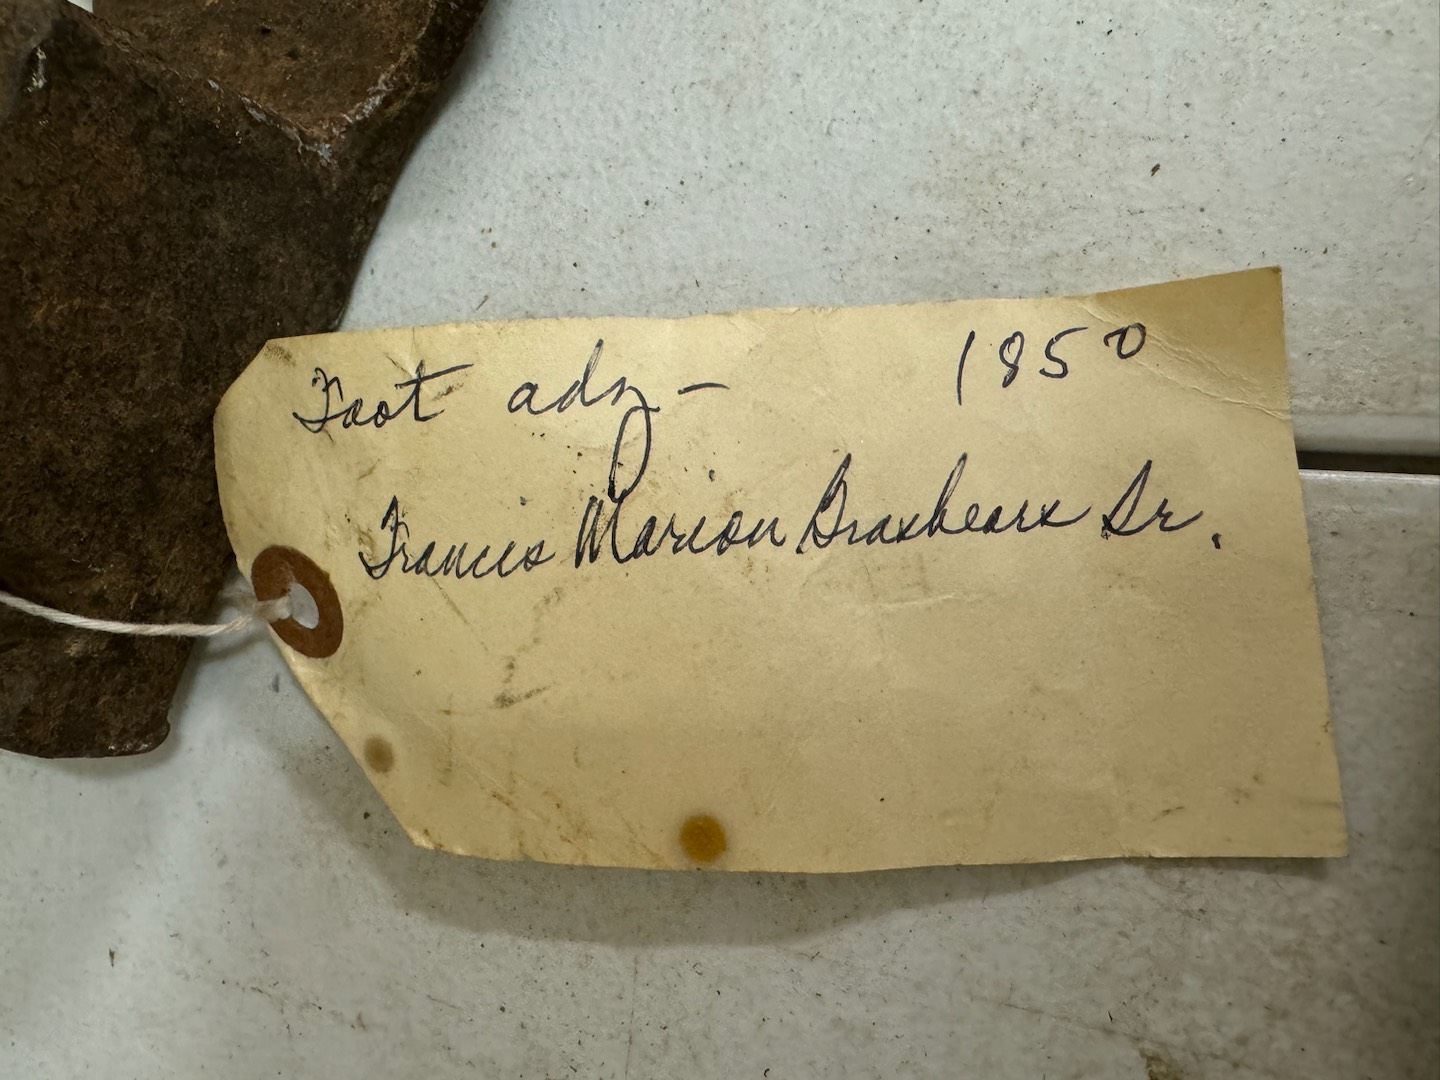 Foot adz - 1850
Francis Marion Brashears Sr.